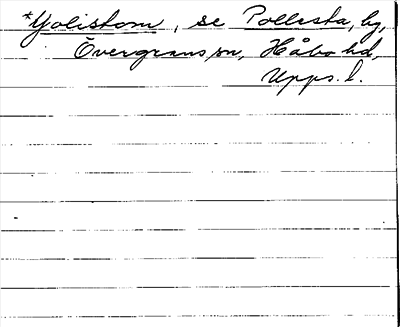 *Yolistom, se Pollista, by,
Övergrans sn, Håbo hd,
Upps. l.